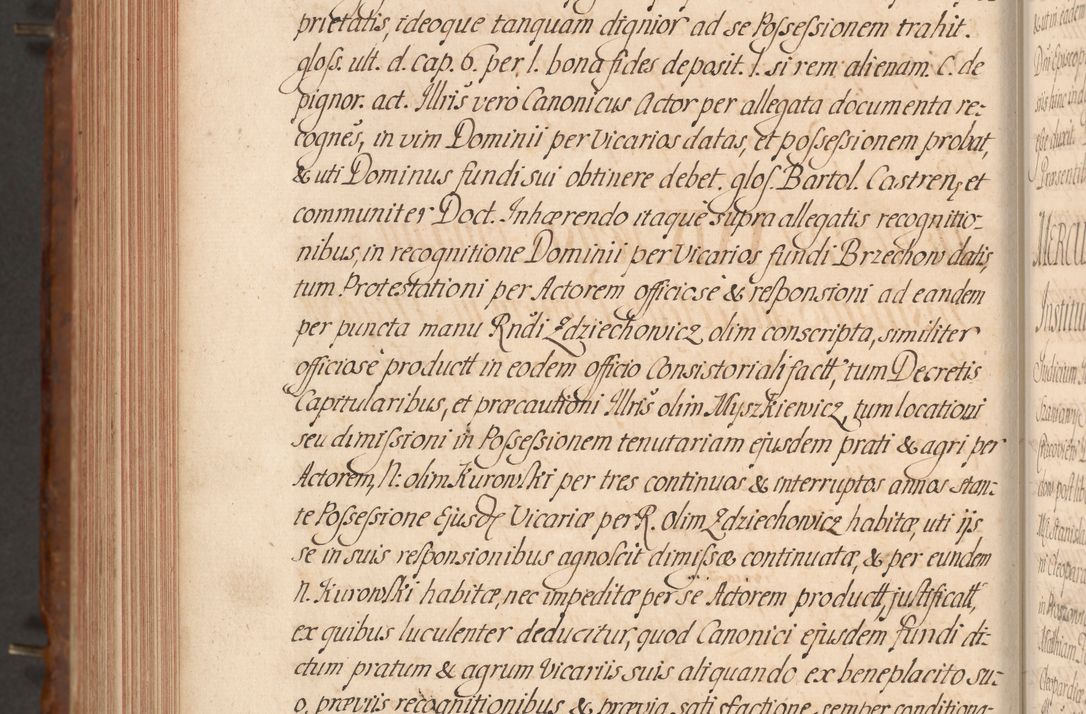 prietatis, ideoque tanquam dignior ad se Possessionem trahit.
gloss. ult. d. cap. 6. per l. bona fides deposit. l. si rem alienam C. de
pignor. act. Illris vero Canonicus Actor per allegata documenta re-
cognes, in vim Dominii per Vicarios datas, et possessionem probat,
& uti Dominus fundi sui obtinere debet. glos. Bartol. Castren, et
communiter Doct. Inhærendo itaque supra allegatis recognitio-
nibus, in recognitione Dominii per Vicarios fundi Brzechow datis,
tum Protestationi per Actorem officiose & responsioni ad eandem
per puncta manu Rndi Zdziechowicz olim conscripta, similiter
officiose productt in eodem officio Consistoriali factt, tum Decretis
Capitularibus, et præcautioni Illris olim Myszkiewicz, tum locationi
seu dimissioni in Possessionem tenutariam ejusdem prati & agri per
Actorem, N. olim Kurowski per tres continuos & interruptos annos stan-
te Possessione Ejusde Vicariæ per R. Olim Zdziechowicz habitæ, uti ijs
se in suis responsionibus agnoscit dimissæ continuatæ, & per eundem
N. Kurowski habitæ, nec impeditæ per se Actorem productt, justificatt,
ex quibus luculenter deducitur, quod Canonici ejusdem fundi di-
ctum pratum & agrum Vicariis suis aliquando ex beneplacito su-
o, præviis recognitionibus & prævia satisfactione, semper conditiona-
MERCU
Institu
Judicium